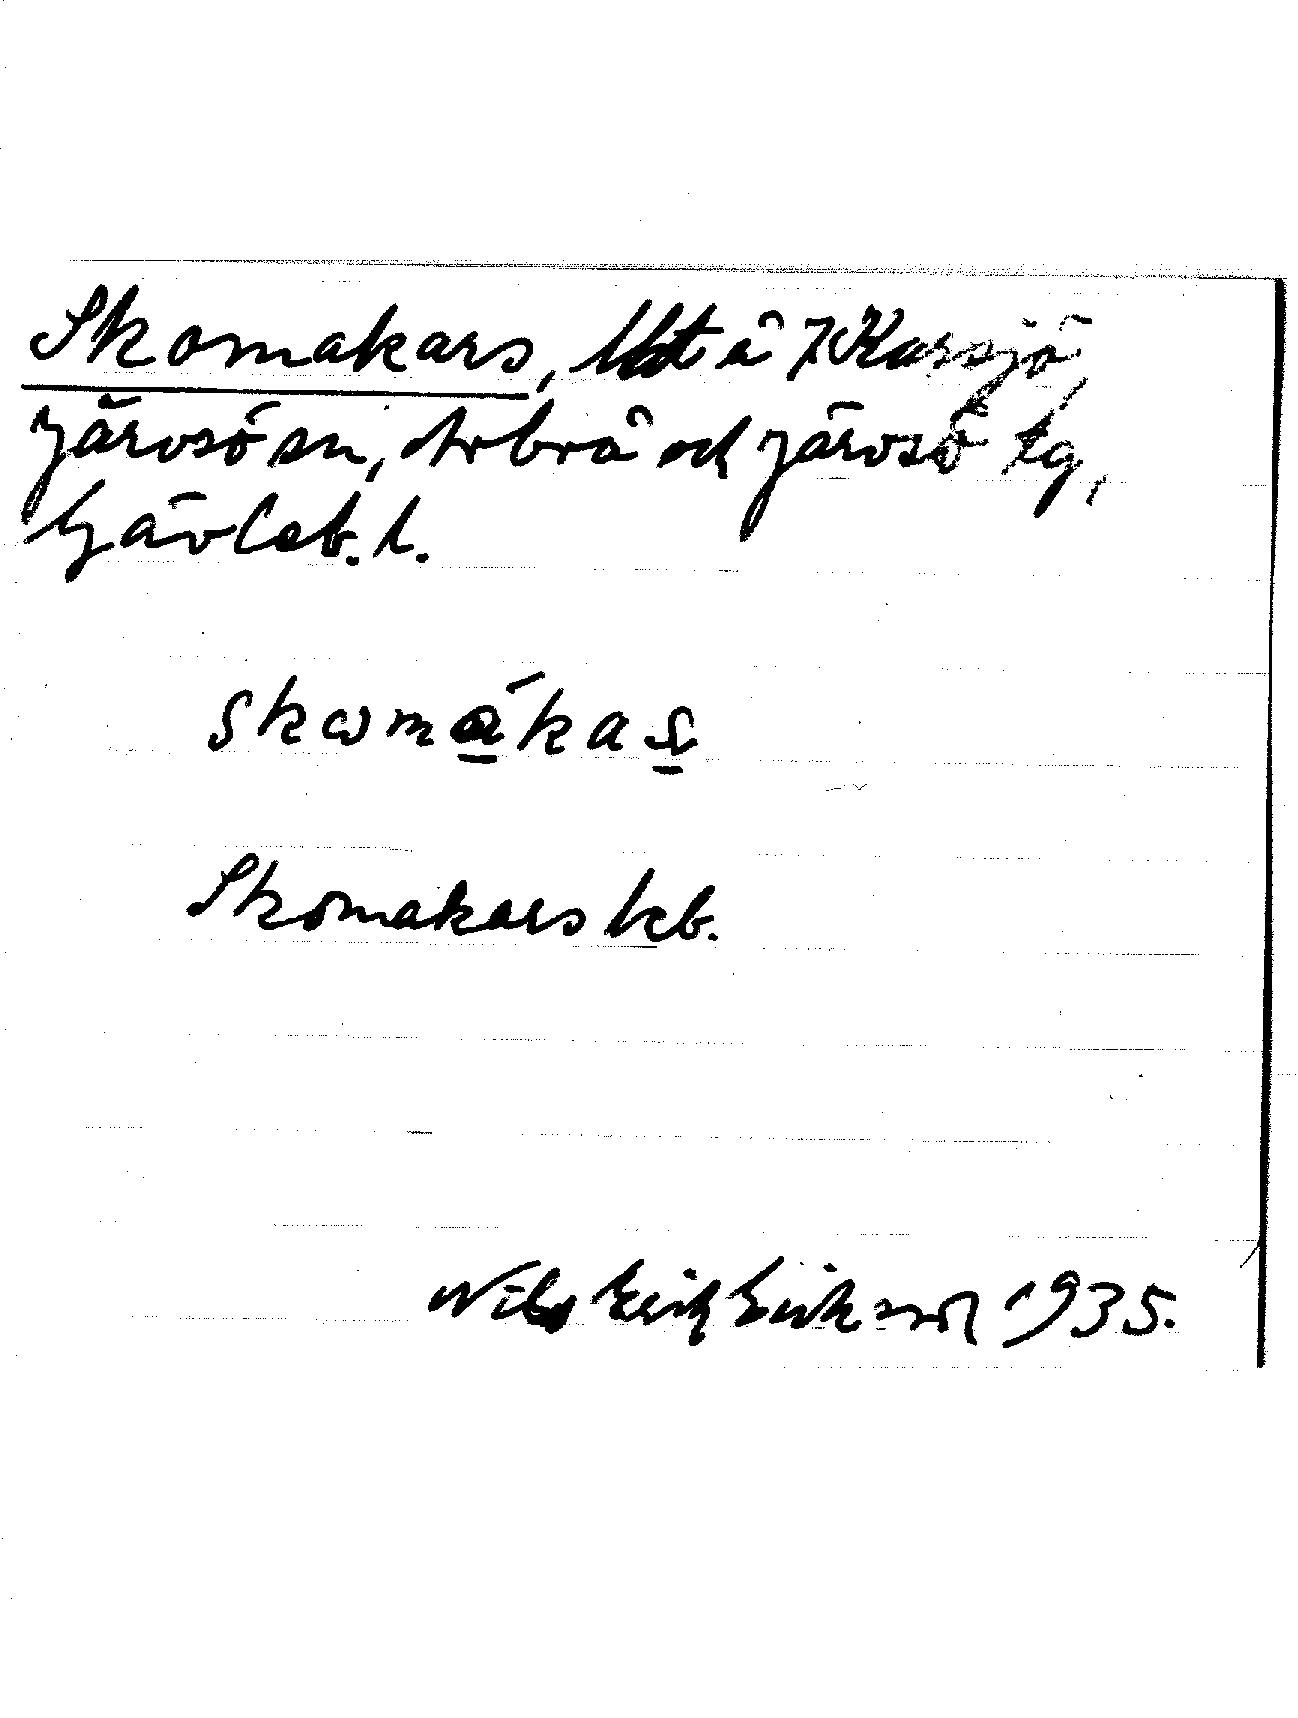 Skomakars, lht å 7 Karsjö,
Järvsö sn, Arbrå och Järvsö tg,
Gävleb. l.
skωmákas
Skomakars kb.
Nils Erik Eriksson 1935.